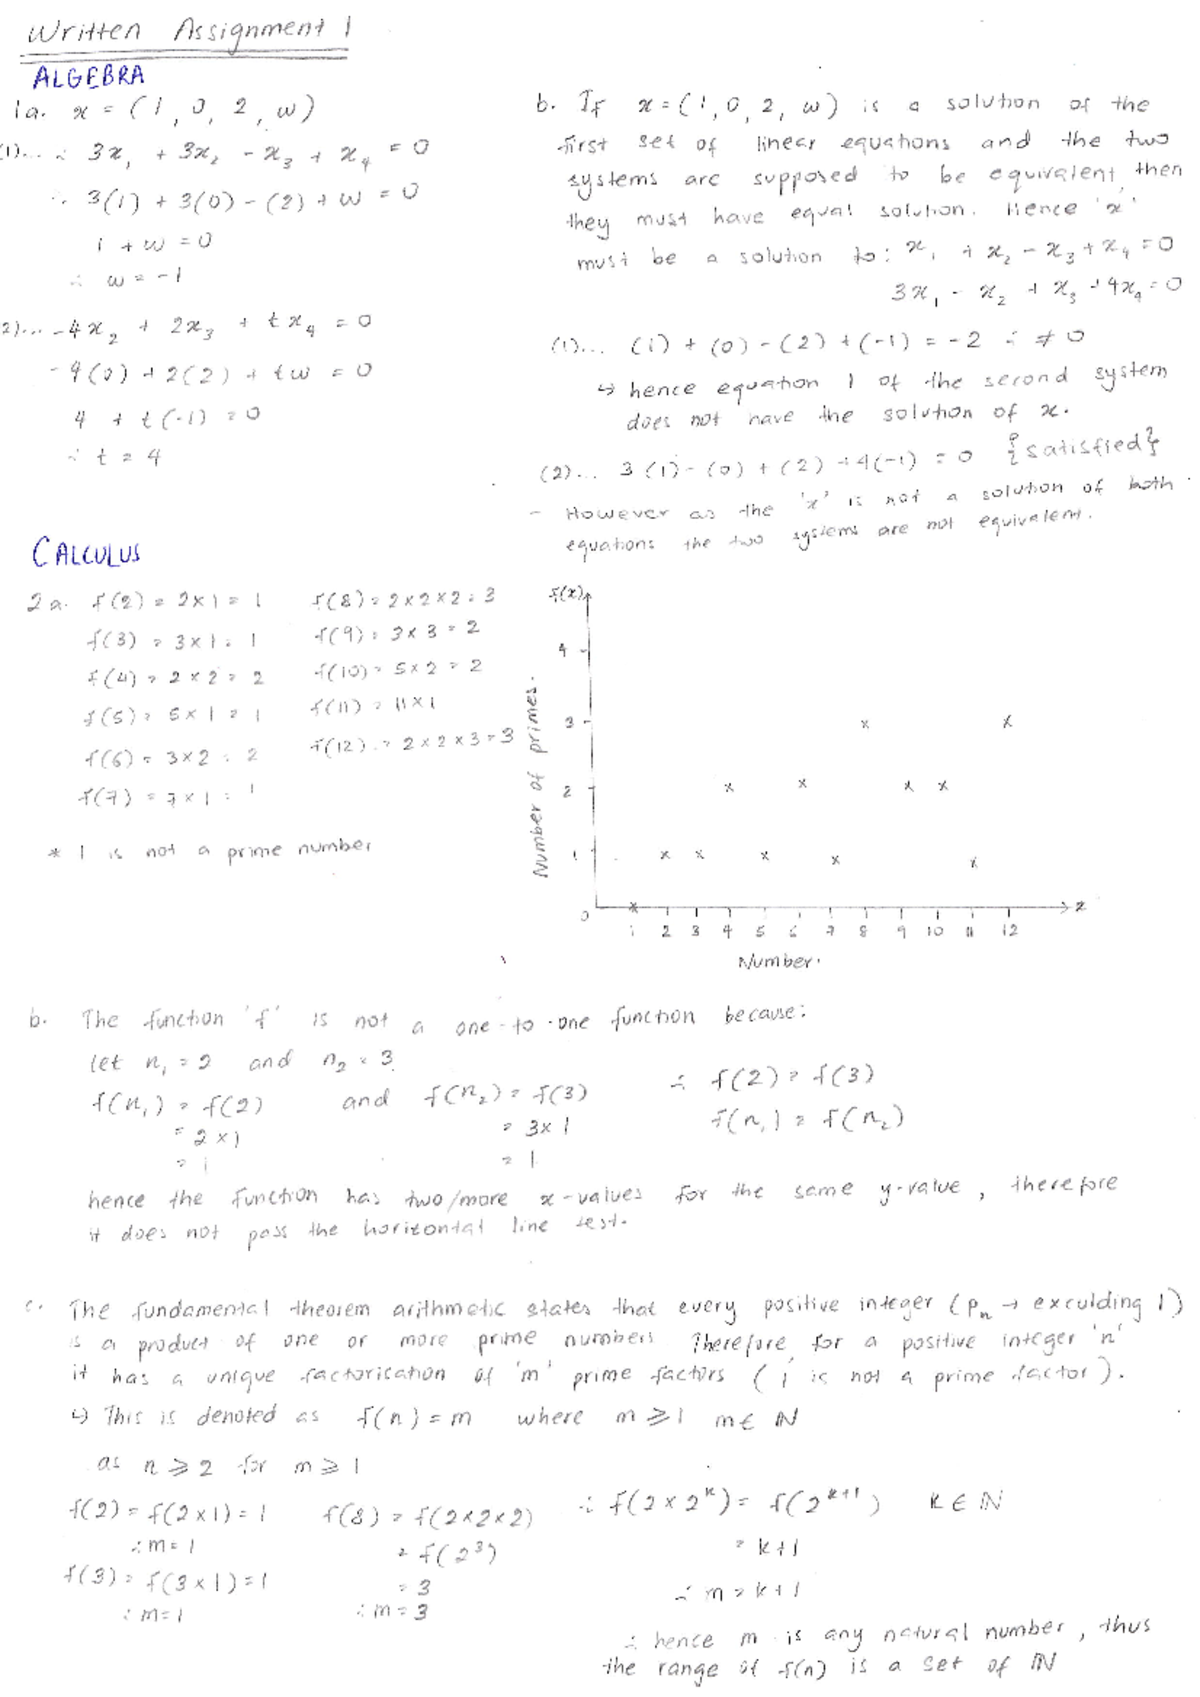 Written Assignment 1
ALGEBRA
1a. x = (1, 0, 2, w)
(1)... ∴ 3x₁ + 3x₂ - x₃ + x₄ = 0
∴ 3(1) + 3(0) - (2) + w = 0
1 + w = 0
∴ w = -1
2)... -4x₂ + 2x₃ + tx₄ = 0
-4(0) + 2(2) + tw = 0
4 + t(-1) = 0
∴ t = 4
b. If x = (1, 0, 2, w) is a solution of the
first set of linear equations and the two
systems are supposed to be equivalent, then
they must have equal solution. Hence 'x'
must be a solution to: x₁ + x₂ - x₃ + x₄ = 0
3x₁ - x₂ + x₃ + 4x₄ = 0
(1)... (1) + (0) - (2) + (-1) = -2 ∴ ≠ 0
↳ hence equation 1 of the second system
does not have the solution of x.
(2)... 3(1) - (0) + (2) + 4(-1) = 0 {satisfied}
- However as the 'x' is not a solution of both
equations the two systems are not equivalent.
CALCULUS
2a. f(2) = 2×1 = 1
f(3) = 3×1 = 1
f(4) = 2×2 = 2
f(5) = 5×1 = 1
f(6) = 3×2 = 2
f(7) = 7×1 = 1
f(8) = 2×2×2 = 3
f(9) = 3×3 = 2
f(10) = 5×2 = 2
f(11) = 11×1
f(12) = 2×2×3 = 3
* 1 is not a prime number
f(x)
4
3
2
1
0
Number of primes.
1 2 3 4 5 6 7 8 9 10 11 12
x
Number.
b. The function 'f' is not a one-to-one function because:
let n₁ = 2 and n₂ = 3
f(n₁) = f(2) and f(n₂) = f(3) ∴ f(2) = f(3)
= 2×1 = 3×1 f(n₁) = f(n₂)
= 1 = 1
hence the function has two/more x-values for the same y-value, therefore
it does not pass the horizontal line test.
c. The fundamental theorem arithmetic states that every positive integer (pₙ → exculding 1)
is a product of one or more prime numbers. Therefore for a positive integer 'n'
it has a unique factorisation of 'm' prime factors (1 is not a prime factor).
↳ This is denoted as f(n) = m where m ⩾ 1 m ∈ ℕ
as n ⩾ 2 for m ⩾ 1
f(2) = f(2×1) = 1
∴ m = 1
f(3) = f(3×1) = 1
∴ m = 1
f(8) = f(2×2×2)
= f(2³)
= 3
∴ m = 3
∴ f(2×2ᵏ) = f(2ᵏ⁺¹) k ∈ ℕ
= k+1
∴ m = k+1
∴ hence m is any natural number, thus
the range of f(n) is a set of ℕ